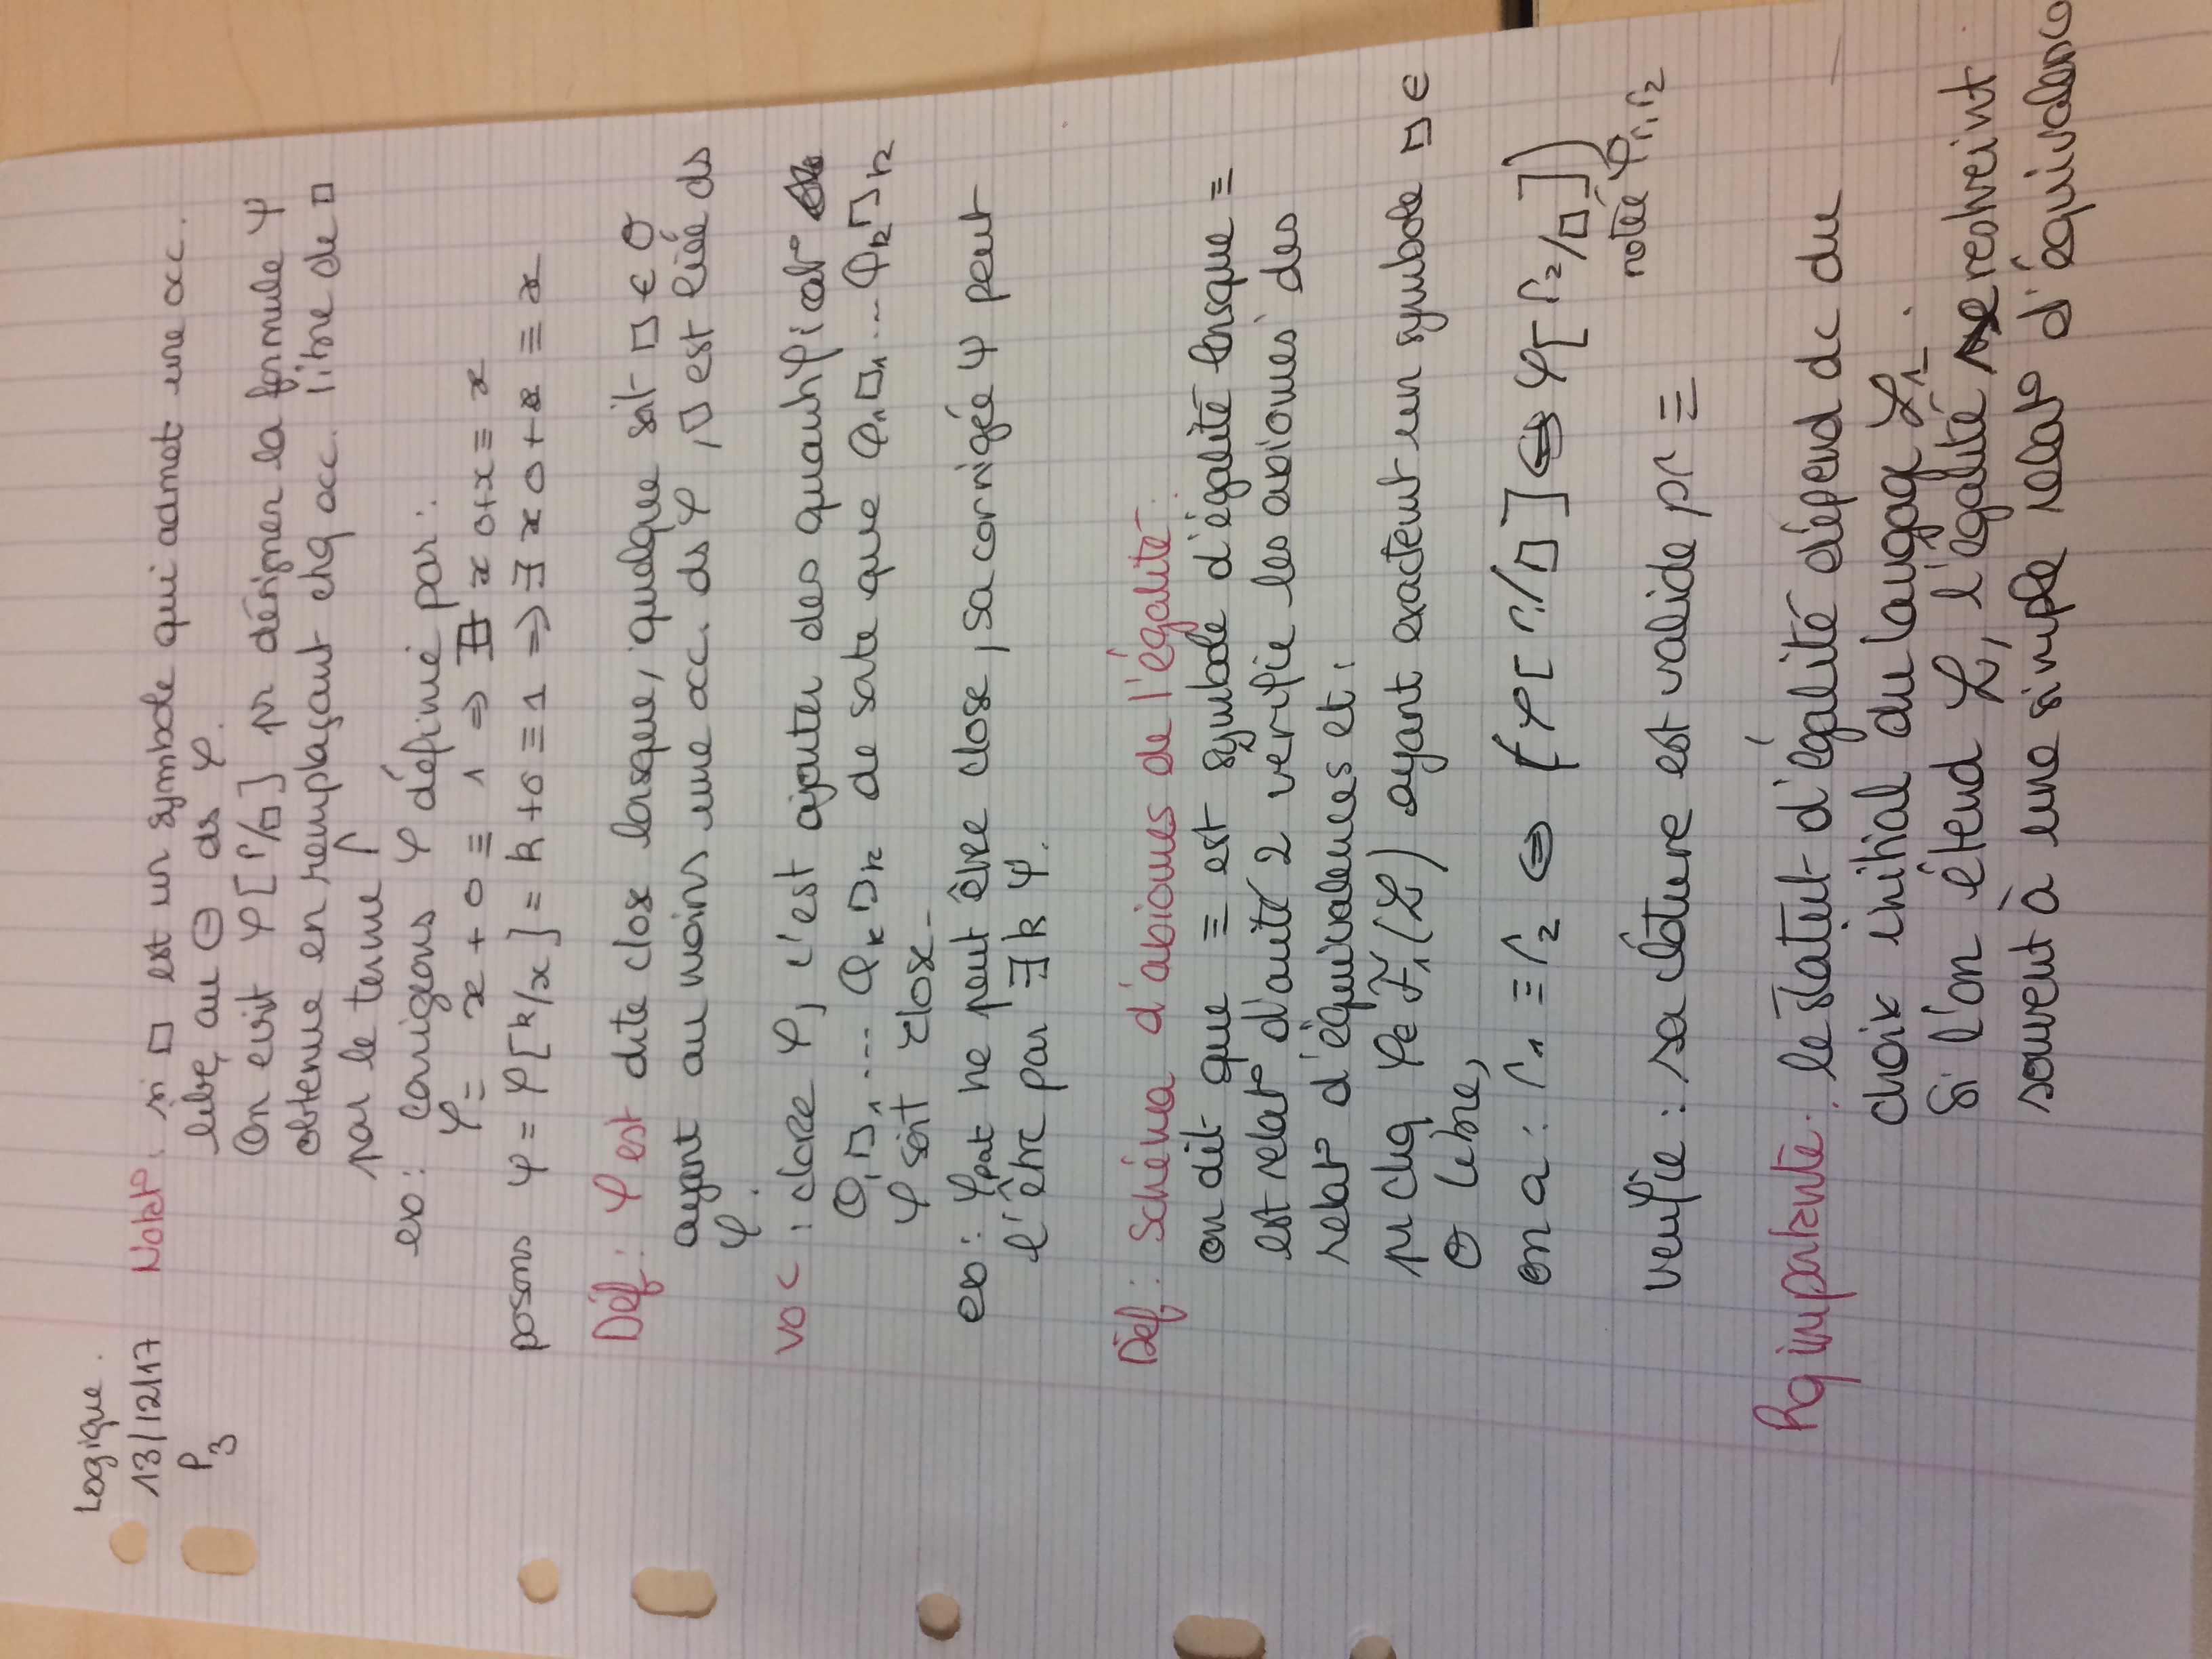 Logique.
13/12/17
P3
Notat°: si □ est un symbole qui admet une occ.
libre au ⊖ ds φ.
On écrit φ[Γ/□] pr désigner la formule Ψ
obtenue en remplaçant chq occ. libre de □
par le terme Γ
ex: corrigeons φ définie par:
φ = x + 0 ≡ 1 ⇒ ∃ x 0+x ≡ x
posons ψ = φ[k/x] = k + 0 ≡ 1 ⇒ ∃ x 0 + x ≡ x
Déf: φ est dite close lorsque, quelque soit □ ∈ O
ayant au moins une occ. ds φ, □ est liée ds
φ.
voc: clore φ, c'est ajouter des quantificat°
Q₁□₁ ... Qₖ□ₖ de sorte que Q₁□₁ ... Qₖ□ₖ
φ soit close.
ex: φpat ne peut être close, sa corrigée ψ peut
l'être par ∃ k ψ.
Déf: Schéma d'axiomes de l'égalité.
on dit que ≡ est symbole d'égalité lorsque ≡
est relat° d'arité 2 vérifie les axiomes des
relat° d'équivalences et:
pr chq φ ∈ F₁(L) ayant exactemt un symbole □ ∈
O libre,
on a: Γ₁ ≡ Γ₂ ⇔ (φ[Γ₁/□] ⇔ φ[Γ₂/□])
notée φΓ₁,Γ₂
verifie: sa clôture est valide pr ≡
Rq importante: le statut d'égalité dépend dc du
choix initial du langage L₁.
Si l'on étend L, l'égalité se restreint
souvent à une simple relat° d'équivalence